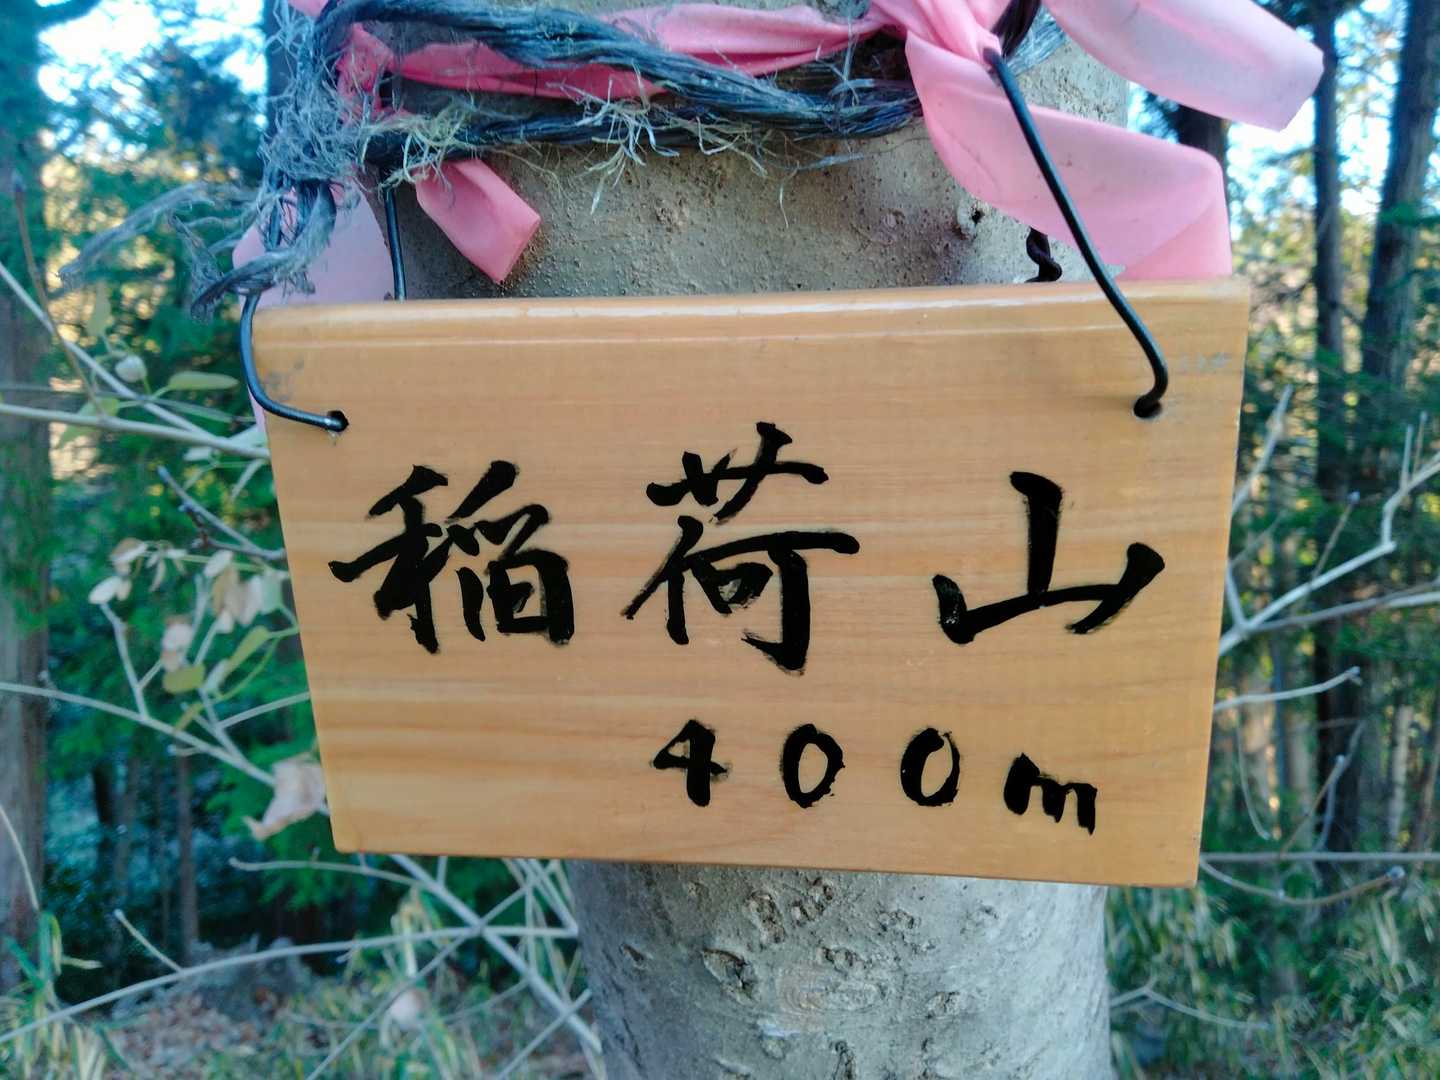 稲荷山
400m